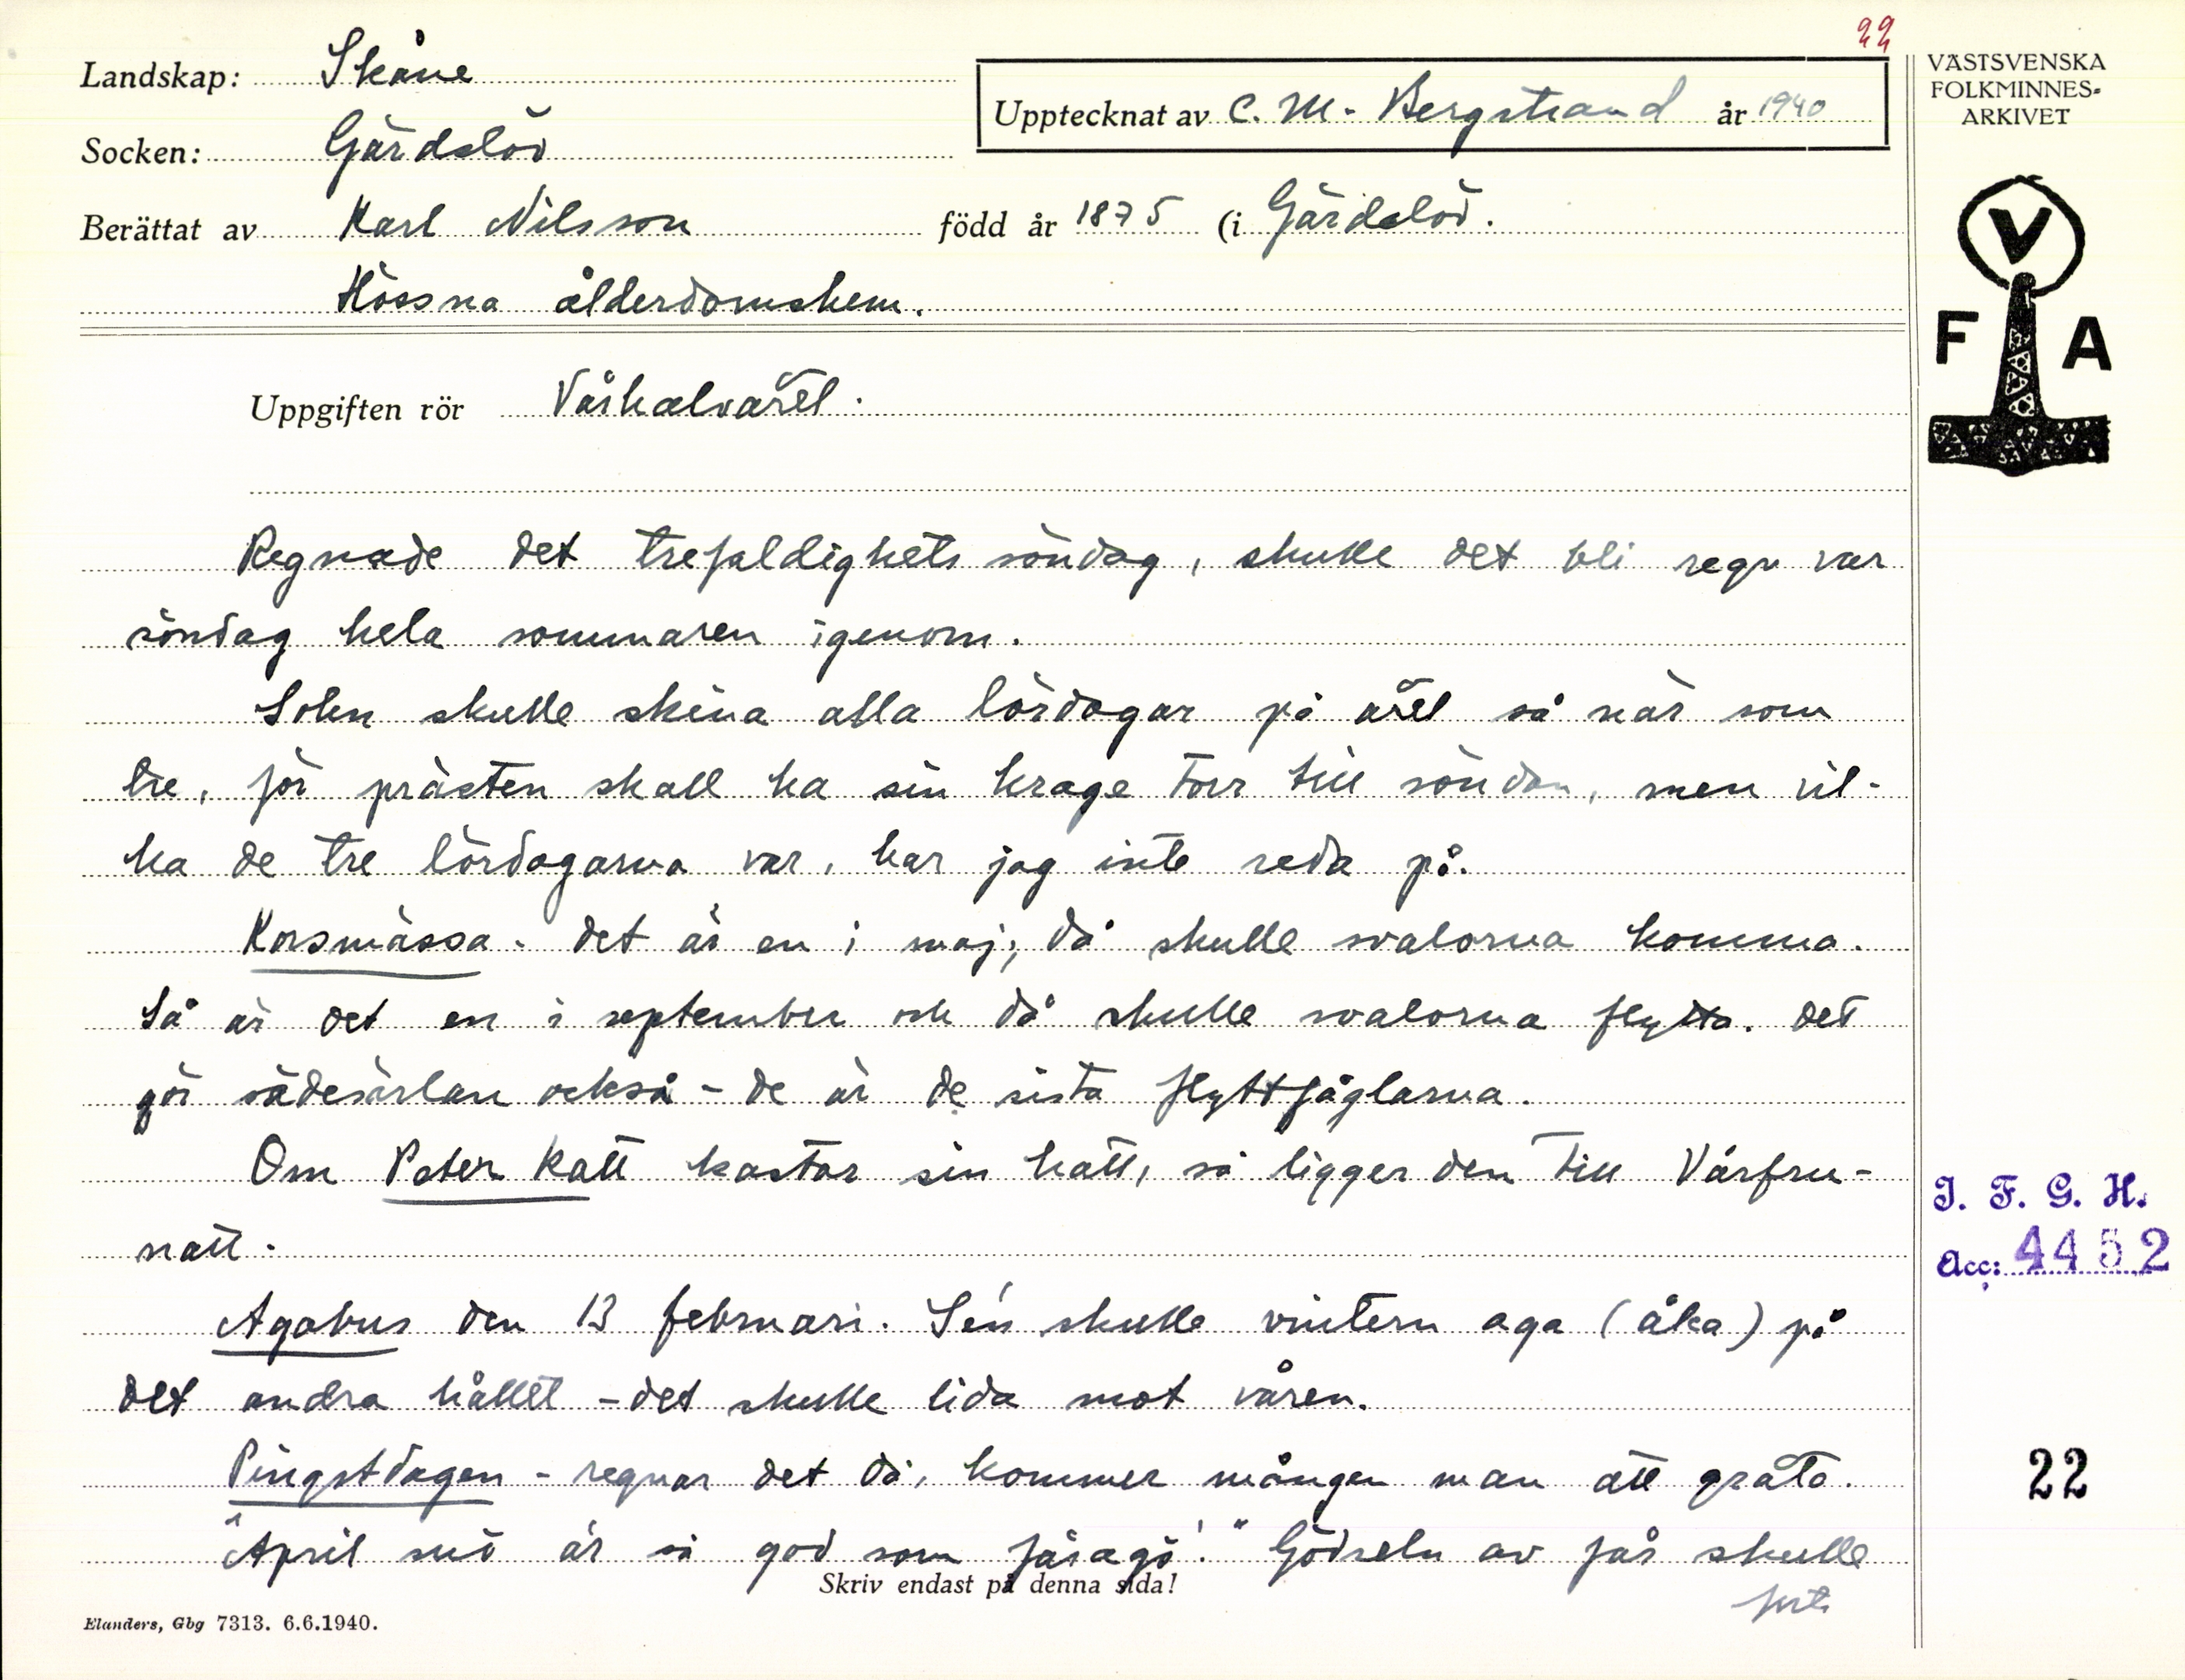 22
Landskap: Skåne
Socken: Gärdslöv
Upptecknat av C. M. Bergstrand år 1940
Berättat av Karl Nilsson född år 1875 (i Gärdslöv.
Hössna ålderdomshem.
VÄSTSVENSKA
FOLKMINNES-
ARKIVET
V
F A
Uppgiften rör Vårhalvåret.
Regnade det trefaldighets söndag, skulle det bli regn var
söndag hela sommaren igenom.
Solen skulle skina alla lördagar på året så när som
tre, för prästen skall ha sin krage torr till söndan, men vil-
ka de tre lördagarna var, har jag inte reda på.
Korsmässa - det är en i maj, då skulle svalorna komma.
Så är det en i september och då skulle svalorna flytta. det
gör sädesärlan också - de är de sista flyttfåglarna.
Om Peter Katt kastar sin hatt, så ligger den till Vårfru-
natt.
Agabus den 13 februari. Sén skulle vintern aga (åka) på
det andra hållet - det skulle lida mot våren.
Pingstdagen - regnar det då, kommer mången man att gråta.
"April snö är så god som fåragö!" Gödseln av får skulle
forts
Skriv endast på denna sida!
Elanders, Gbg 7313. 6.6.1940.
I. F. G. H.
Acc: 4452
22